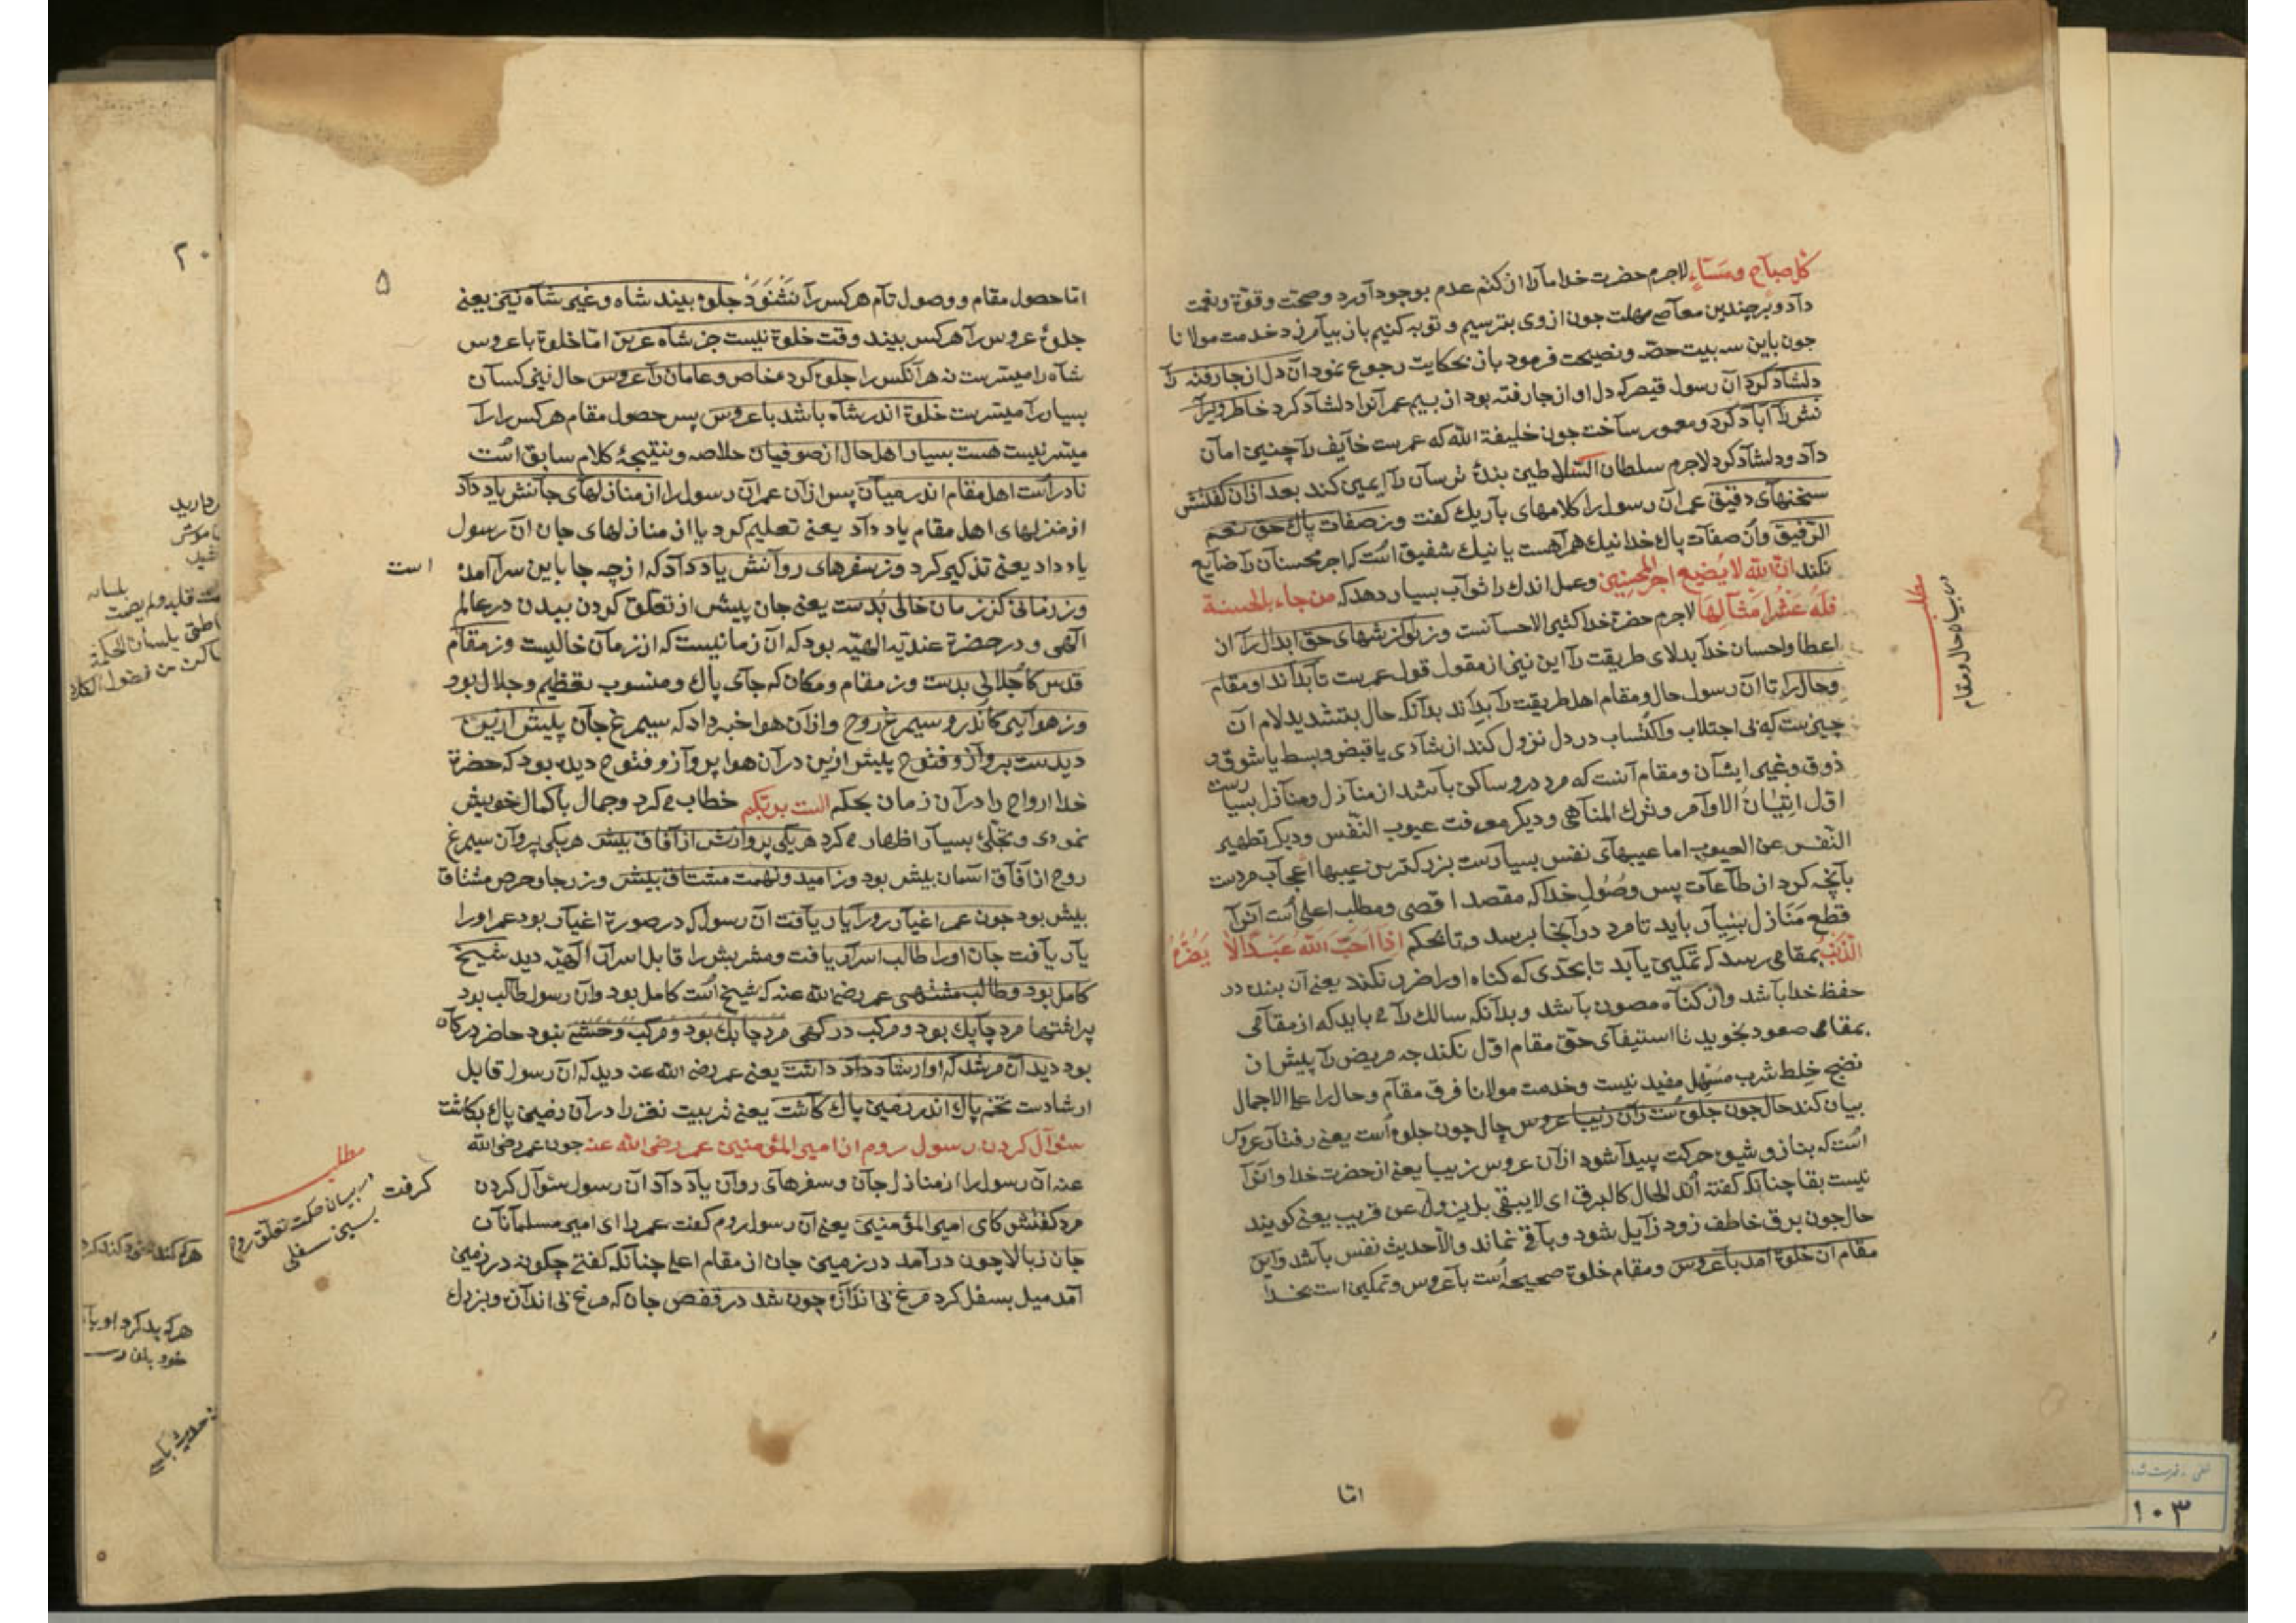 كل صباح ومساء لاجرم حضرت خدا ما را از كتم عدم بوجود آورد وصحت وقوة ونعمت
داد وبر چندين معاصى مهلت جون از وى بترسيم وتوبه كنيم باز بيامرزد خدمت مولانا
جون باين سه بيت حصّه ونصيحت فرمود باز بحكايت رجوع نمود آن دل از جا رفته را
دلشاد كرد آن رسول قيصر كه دل او از جا رفته بود از بيم عمر آنرا دلشاد كرد خاطر ويرا
نش را آباد كرد ومعمور ساخت جون خليفة الله كه عمرست خايف را چنين امان
داد ودلشاد كرد لاجرم سلطان السلاطين بندۀ ترسان را ايمن كند بعد ازان كفتش
سخنهاى دقيق عمر آن رسول را كلامهاى باريك كفت وز صفات پاك حق نعم
الرفيق وان صفات پاك خدا نيك همراهست يا نيك شفيق است كه اجر محسنان را ضايع
نكند ان الله لا يضيع اجر المحسنين وعمل اندك را ثواب بسيار دهد كه من جاء بالحسنة
فله عشر امثالها لاجرم حضرة خدا كثير الاحسانست وز نوازشهاى حق ابدال را ان
اعطا واحسان خدا بدلاى طريقت را اين نيز از مقول قول عمرست تا بداند او مقام
وحال را تا ان رسول حال ومقام اهل طريقت را بداند بدانكه حال بتشديد لام ان
چيزيست كه بى اجتلاب واكتساب در دل نزول كند از شادى يا قبض وبسط يا شوق و
ذوق وغير ايشان ومقام آنست كه مرد درو ساكن باشد از منازل ومنازل بسيارست
اوّل اتيان الاوامر وترك المناهى وديكر معرفت عيوب النفس وديكر تطهير
النفس عن العيوب اما عيبهاى نفس بسيارست بزركترين عيبها اعجاب مردست
بآنچه كرد از طاعات پس وصول خدا كه مقصد اقصى ومطلب اعلى است آنرا
قطع منازل بسيار بايد تا مرد در آنجا برسد وتا بحكم اذا احبّ الله عبدا لا يضره
الذنب بمقامى رسد كه تمكين يابد تا بحدى كه كناه او را ضرر نكند يعنى آن بنده در
حفظ خدا باشد واز كناه مصون باشد وبدانكه سالك را مى بايد كه از مقامى
بمقامى صعود نجويد تا استيفاى حق مقام اوّل نكند جه مريض را پيش از
نضج خلط شرب مسهل مفيد نيست وخدمت مولانا فرق مقام وحال را على الاجمال
بيان كند حال جون جلوه است زان زيبا عروس حال جون جلوه است يعنى رفتار عروس
است كه بناز وشيوه حركت پيدا شود ازان عروس زيبا يعنى از حضرت خدا وانرا
نيست بقا چنانكه كفته اند الحال كالبرق اى لا يبقى بل يزول عن قريب يعنى كويند
حال جون برق خاطف زود زايل شود وباقى نماند والا حديث نفس باشد واين
مقام ان خلوة آمد با عروس ومقام خلوة صحيحه است با عروس وتمكين است بخدا
امّا
مطلب
در بيان حال ومقام
۵
امّا حصول مقام ووصول تام هر كس را نشنود جلوه بيند شاه وغير شاه نيز يعنى
جلوۀ عروس را هر كس بيند وقت خلوة نيست جز شاه عزيز امّا خلوة با عروس
شاه را ميسّرست نه هر آنكس را جلوه كرده خاص وعامان را عروس حال نيز كسان
بسيار را ميسّرست خلوة اندر شاه باشد با عروس پس حصول مقام هر كس را را
ميسّر نيست هست بسيار اهل حال از صوفيان خلاصه ونتيجۀ كلام سابق است
نادرست اهل مقام اندر ميان پس ازان عمر آن رسول را از منازلهاى جانش ياد داد
از منزلهاى اهل مقام ياد داد يعنى تعليم كرد يا از منازلهاى جان ان رسول
ياد داد يعنى تذكير كرد وز سفرهاى روانش ياد داد كه از چه جا باين سرا آمده
است
وز زمانى كز زمان خالى بدست يعنى جان پيش از تعلق كردن ببدن در عالم
الهى ودر حضرة عنديّه الهيّه بود كه ان زمانيست كه از زمان خاليست وز مقام
قدس كاجلالى بدست وز مقام ومكان كه جاى پاك ومنسوب بتعظيم وجلال بود
وز هوايى كاندرو سيمرغ روح وازان هوا خبر داد كه سيمرغ جان پيش ازين
ديدست پرواز وفتوح پيش ازين دران هوا پرواز وفتوح ديده بود كه حضرة
خدا ارواح را دران زمان بحكم الست بربكم خطاب مى كرد وجمال با كمال خويش
نمودى وتجلّئ بسيار اظهار مى كرد هر يكى پروازش از آفاق بيش هر يكى پرواز سيمرغ
روح از آفاق آسمان بيش بود وز اميد ونهمت مشتاق بيش وز رجا وحرص مشتاق
بيش بود جون عمر اغيار رو را يار يافت ان رسول كه در صورة اغيار بود عمر او را
يار يافت جان او را طالب اسرار يافت ومشربش را قابل اسرار الهيّه ديد شيخ
كامل بود وطالب مشتهى عمر رضى الله عنه كه شيخ است كامل بود وان رسول طالب بود
پر اشتها مرد چابك بود ومركب دركهى مرد چابك بود ومركب وحشى نبود حاضر دركاه
بود ديد آن مرشد كه او ارشاد داشت يعنى عمر رضى الله عنه ديد كه ان رسول قابل
ارشادست تخم پاك اندر زمين پاك كاشت يعنى تربيت نفز را دران زمين پاك بكاشت
سئوال كردن رسول روم از امير المؤمنين عمر رضى الله عنه جون عمر رضى الله
عنه ان رسول را از منازل جان وسفرهاى روان ياد داد ان رسول سئوال كردن
كرفت
مرد كفتش كاى امير المؤمنين يعنى ان رسول روم كفت عمر را اى امير مسلمانان
جان ز بالا چون در آمد در زمين جان از مقام اعلى چنانكه كفتى چكونه در زمين
آمد ميل بسفل كرد مرغ بى اندازه چون شد در قفص جان كه مرغ بى اندازه وبزرك
مطلب
در بيان حكمت تعلّق روح
بسجن سفلى
۲۰